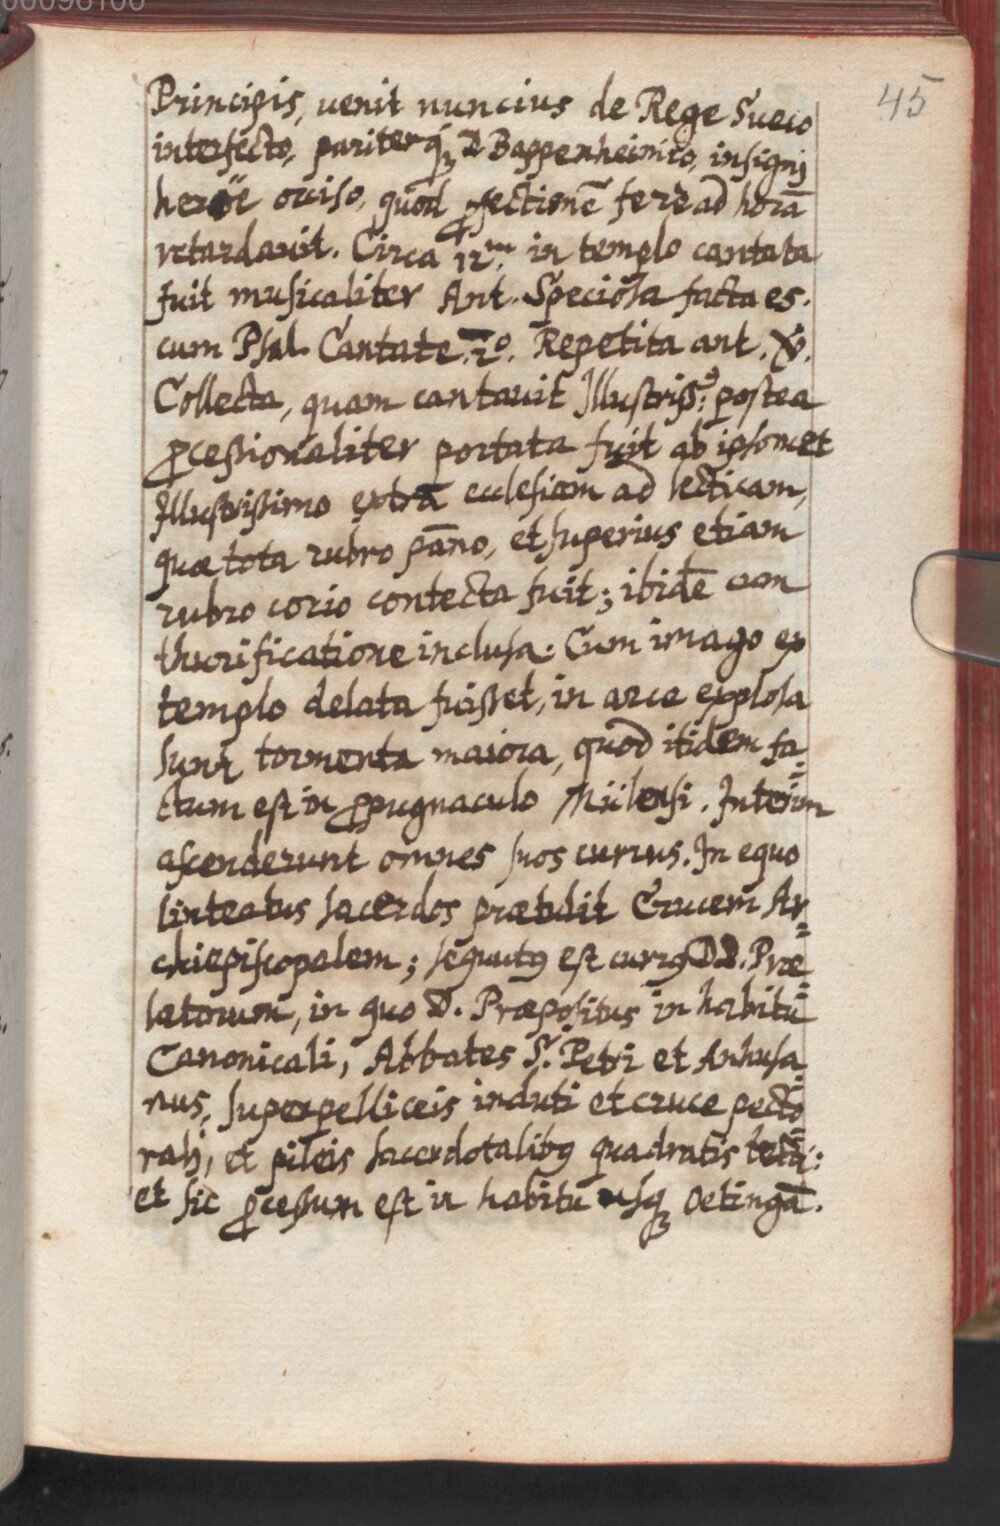 00096106
45
Principis, uenit nuncius de Rege Sueco
interfecto, pariterq́ꝫ D Bappenheimio, insigni
heroë occiso, quod ꝓfectionē fere ad horā
retardauit. Circa 12.ᵐ in templo cantata
fuit musicaliter Ant. Speciosa facta es.
cum Psal. Cantate. 2º. Repetita ant. ℣.
Collecta, quam cantauit Illustriss.ꝰ postea
ꝓcessionaliter portata fuit ab ipsomet
Illustrissimo extrā ecclesiam ad lecticam,
quæ tota rubro pāno, et superius etiam
rubro corio contecta fuit; ibidē cum
thurificatione inclusa. Cum imago ex
templo delata fuisset, in arce explosa
sunt tormenta maiora, quod itidem fa=
ctum est in ꝓpugnaculo Milensi. Interim
ascenderunt omnes suos currus. In equo
linteatus sacerdos prætulit Crucem Ar=
chiepiscopalem; sequutꝰ est currꝰ DD. Præ=
latorum, in quo D. Præpositus in habitu
Canonicali, Abbates S. Petri et Anhusa=
nus, superpelliceis induti et cruce pecto=
rali, et pileis sacerdotalibꝰ quadratis tecti:
et sic ꝓcessum est in habitu usqꝫ Oetingā.